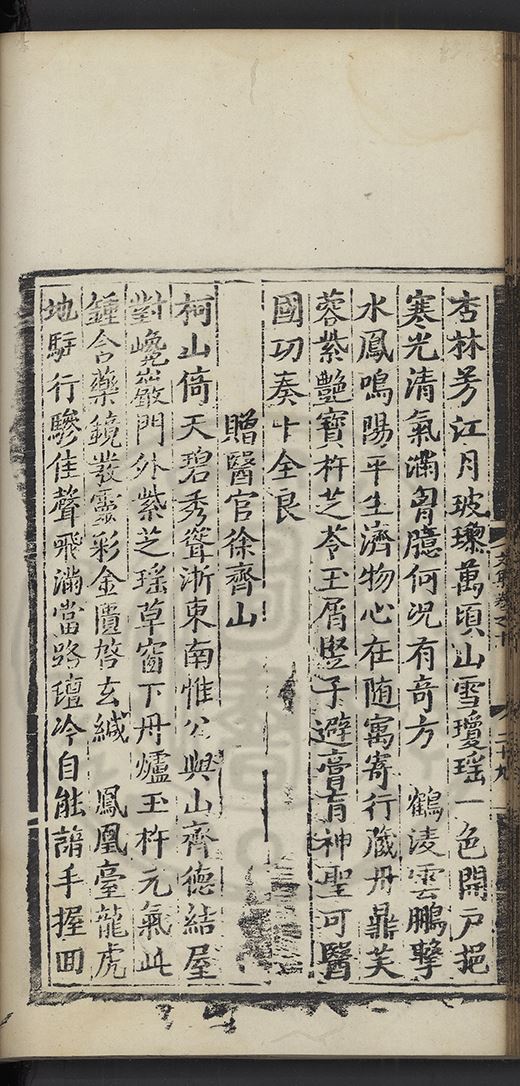 杏林芳江月玻瓈萬頃山雪瓊瑤一色開戸挹
寒光清氣滿胷臆何況有奇方　鶴淩雲鵬擊
水鳳鳴陽平生濟物心在随寓寄行藏丹鼎芙
蓉紫艷寶杵芝苓玉屑竪子避膏肓神聖可醫
國功奏十全良
贈醫官徐齊山
柯山倚天碧秀聳浙東南惟公與山齊德結屋
對巉巖門外紫芝瑤草窗下丹爐玉杵元氣此
鍾含藥鏡發靈彩金匱啓玄緘　鳳凰臺龍虎
地駐行驂佳聲飛滿當路璮冷自能諳手握囬
二十九